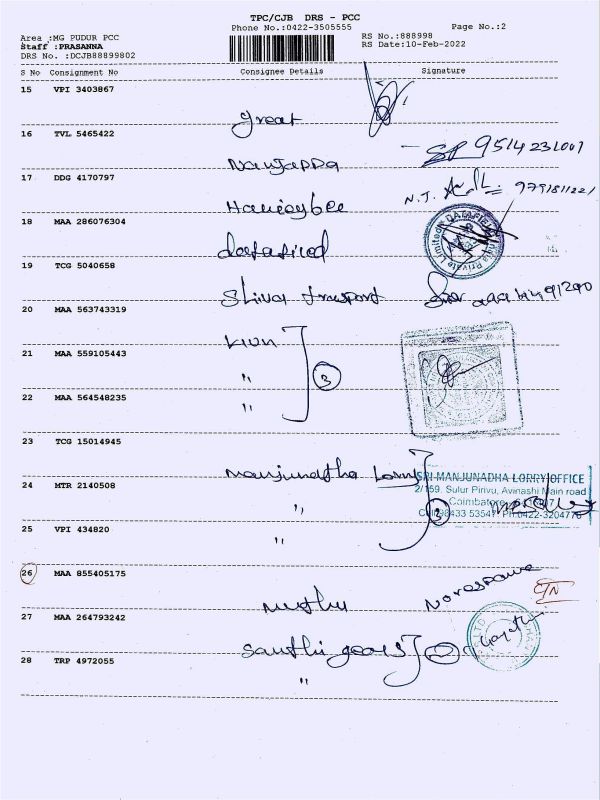 TPC/CJB DRS - PCC
Phone No.:0422-3505555 Page No.:2
Area :MG PUDUR PCC RS No.:888998
Staff :PRASANNA RS Date:10-Feb-2022
DRS No. :DCJB88899802
S No Consignment No Consignee Details Signature
15 VPI 3403867
great
16 TVL 5465422
Nanjappa 9514231001
17 DDG 4170797
N.T. 9791811221
Honeybee
18 MAA 286076304
datafield
19 TCG 5040658
Shiva transport
20 MAA 563743319
21 MAA 559105443
" 3
22 MAA 564548235
"
23 TCG 15014945
Manjunatha Lorry SRI MANJUNADHA LORRY OFFICE
24 MTR 2140508 2/159, Sulur Pirivu, Avinashi Main road
" Coimbatore
25 VPI 434820
"
26 MAA 855405175
muthu CTN
27 MAA 264793242
Santhi gears Gayathri
28 TRP 4972055
"